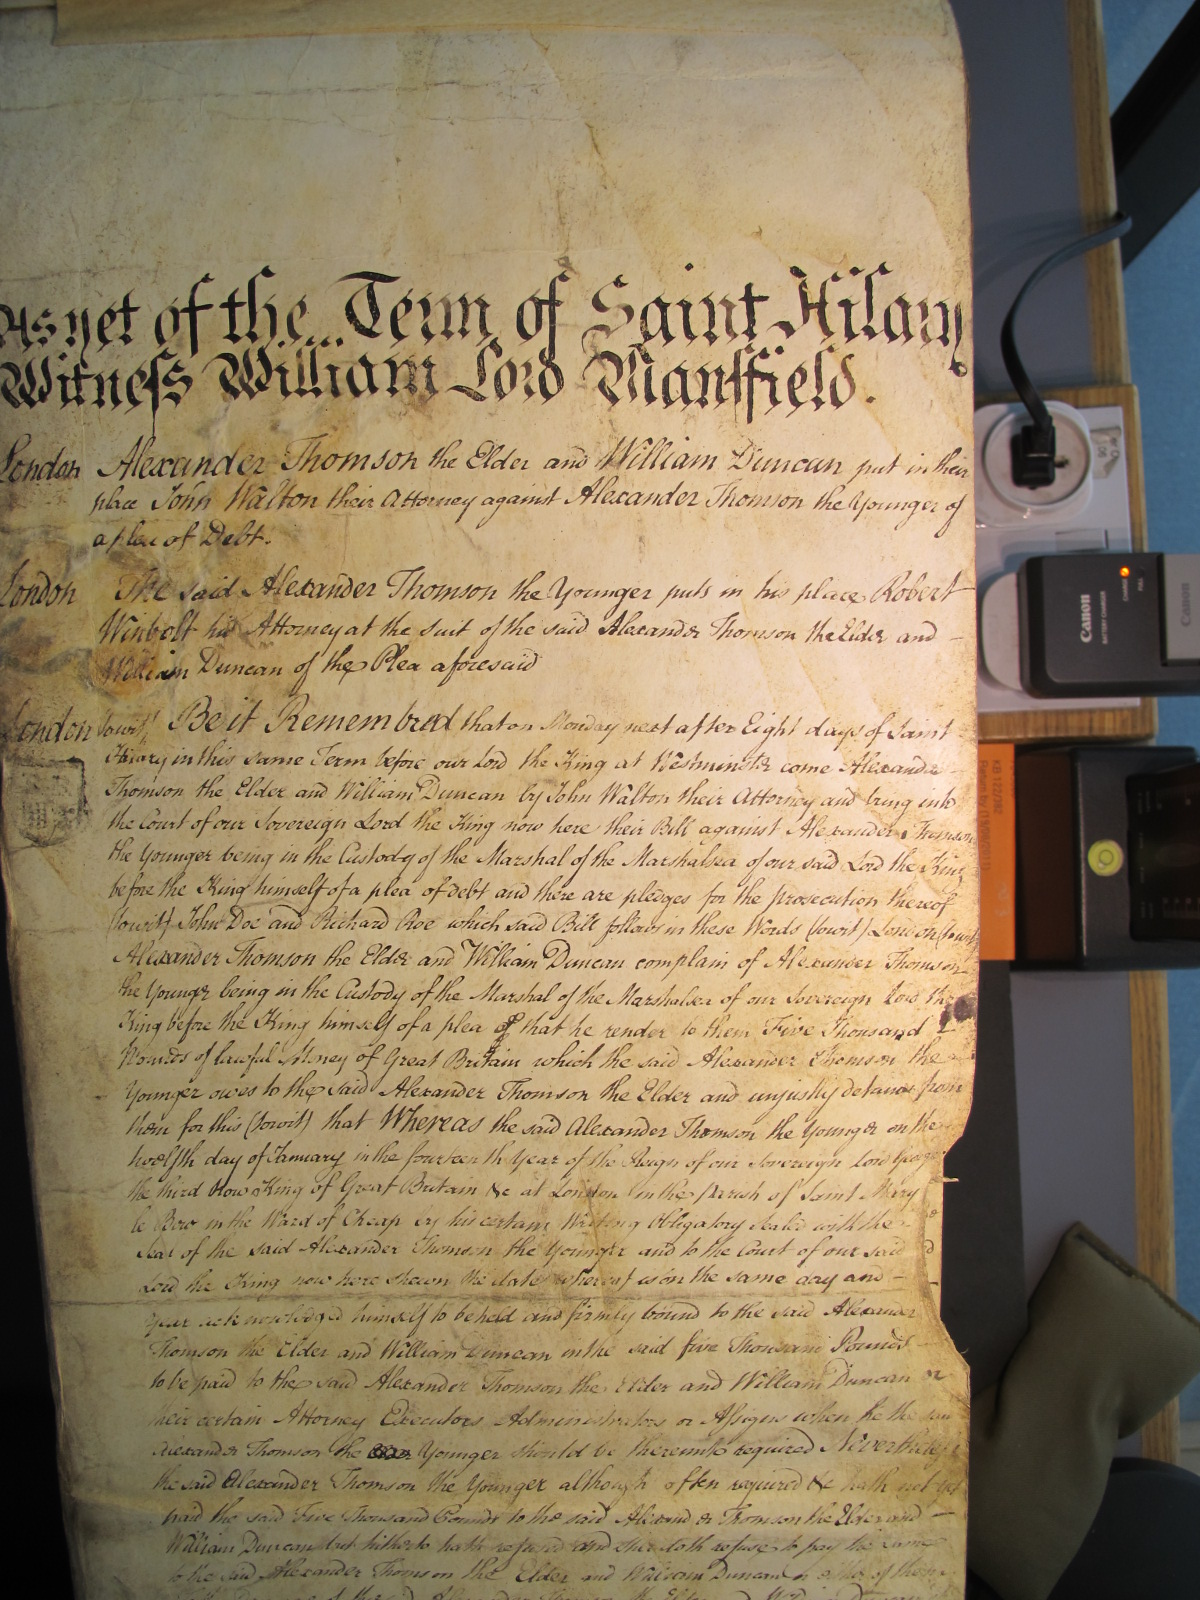 As yet of the Term of Saint Hilary
Witness William Lord Mansfield.
London Alexander Thomson the Elder and William Duncan put in their
place John Walton their Attorney against Alexander Thomson the Younger of
a plea of Debt.
London The said Alexander Thomson the Younger puts in his place Robert
Winbolt his Attorney at the suit of the said Alexander Thomson the Elder and
William Duncan of the Plea aforesaid
London (towit) Be it Remembred that on Monday next after Eight days of Saint
Hilary in this same Term before our Lord the King at Westminster come Alexander
Thomson the Elder and William Duncan by John Walton their Attorney and bring into
the Court of our Sovereign Lord the King now here their Bill against Alexander Thomson
the Younger being in the Custody of the Marshal of the Marshalsea of our said Lord the King
before the King himself of a plea of debt and there are pledges for the prosecution thereof
(towit) John Doe and Richard Roe which said Bill follows in these Words (towit) London (towit)
Alexander Thomson the Elder and William Duncan complain of Alexander Thomson
the Younger being in the Custody of the Marshal of the Marshalsea of our Sovereign Lord the
King before the King himself of a plea of that he render to them Five Thousand
Pounds of lawful Money of Great Britain which the said Alexander Thomson the
Younger owes to the said Alexander Thomson the Elder and unjustly detains from
them for this (towit) that Whereas the said Alexander Thomson the Younger on the
twelfth day of January in the fourteenth Year of the Reign of our Sovereign Lord George
the third now King of Great Britain &c at London in the Parish of Saint Mary
le Bow in the Ward of Cheap by his certain Writing Obligatory sealed with the
seal of the said Alexander Thomson the Younger and to the Court of our said
Lord the King now here shewn the date whereof is on the same day and
Year acknowledged himself to be held and firmly bound to the said Alexander
Thomson the Elder and William Duncan in the said five Thousand Pounds
to be paid to the said Alexander Thomson the Elder and William Duncan or
their certain Attorney Executors Administrators or Assigns when he the said
Alexander Thomson the Younger should be thereunto required Nevertheless
the said Alexander Thomson the Younger although often required &c hath not yet
paid the said Five Thousand Pounds to the said Alexander Thomson the Elder and
William Duncan but hitherto hath refused and still doth refuse to pay the same
to the said Alexander Thomson the Elder and William Duncan or either of them
Canon
BATTERY CHARGER
CHARGE
FULL
Canon